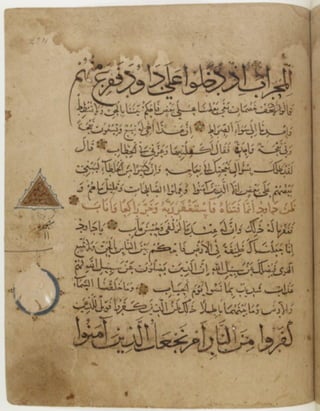 المحراب اذ دخلوا على داود ففزع منهم
قالوا لا تخف خصمان بغى بعضنا على بعض فاحكم بيننا بالحق ولا تشطط
واهدنا الى سواء الصراط ان هذا اخي له تسع وتسعون نعجة
ولي نعجة واحدة فقال اكفلنيها وعزني في الخطاب قال
لقد ظلمك بسؤال نعجتك الى نعاجه وان كثيرا من الخلطاء ليبغي
بعضهم على بعض الا الذين آمنوا وعملوا الصالحات وقليل ما هم و
ظن داود أنما فتناه فاستغفر ربه وخر راكعا وأناب
فغفرنا له ذلك وان له عندنا لزلفى وحسن مآب يا داود
انا جعلناك خليفة في الارض فاحكم بين الناس بالحق ولا تتبع
الهوى فيضلك عن سبيل الله ان الذين يضلون عن سبيل الله لهم
عذاب شديد بما نسوا يوم الحساب وما خلقنا السماء
والارض وما بينهما باطلا ذلك ظن الذين كفروا فويل للذين
كفروا من النار أم نجعل الذين آمنوا
سجدة